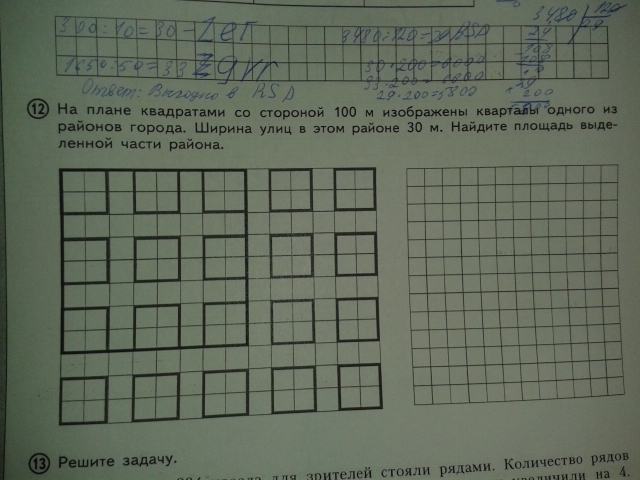 300:10=30 - Zer
3480:120=29 RSD
1650:50=33
Ответ: Выгодно в RSD
29·200=5800
3480 120
29
200
12 На плане квадратами со стороной 100 м изображены кварталы одного из
районов города. Ширина улиц в этом районе 30 м. Найдите площадь выде-
ленной части района.
13 Решите задачу.
для зрителей стояли рядами. Количество рядов
увеличили на 4.